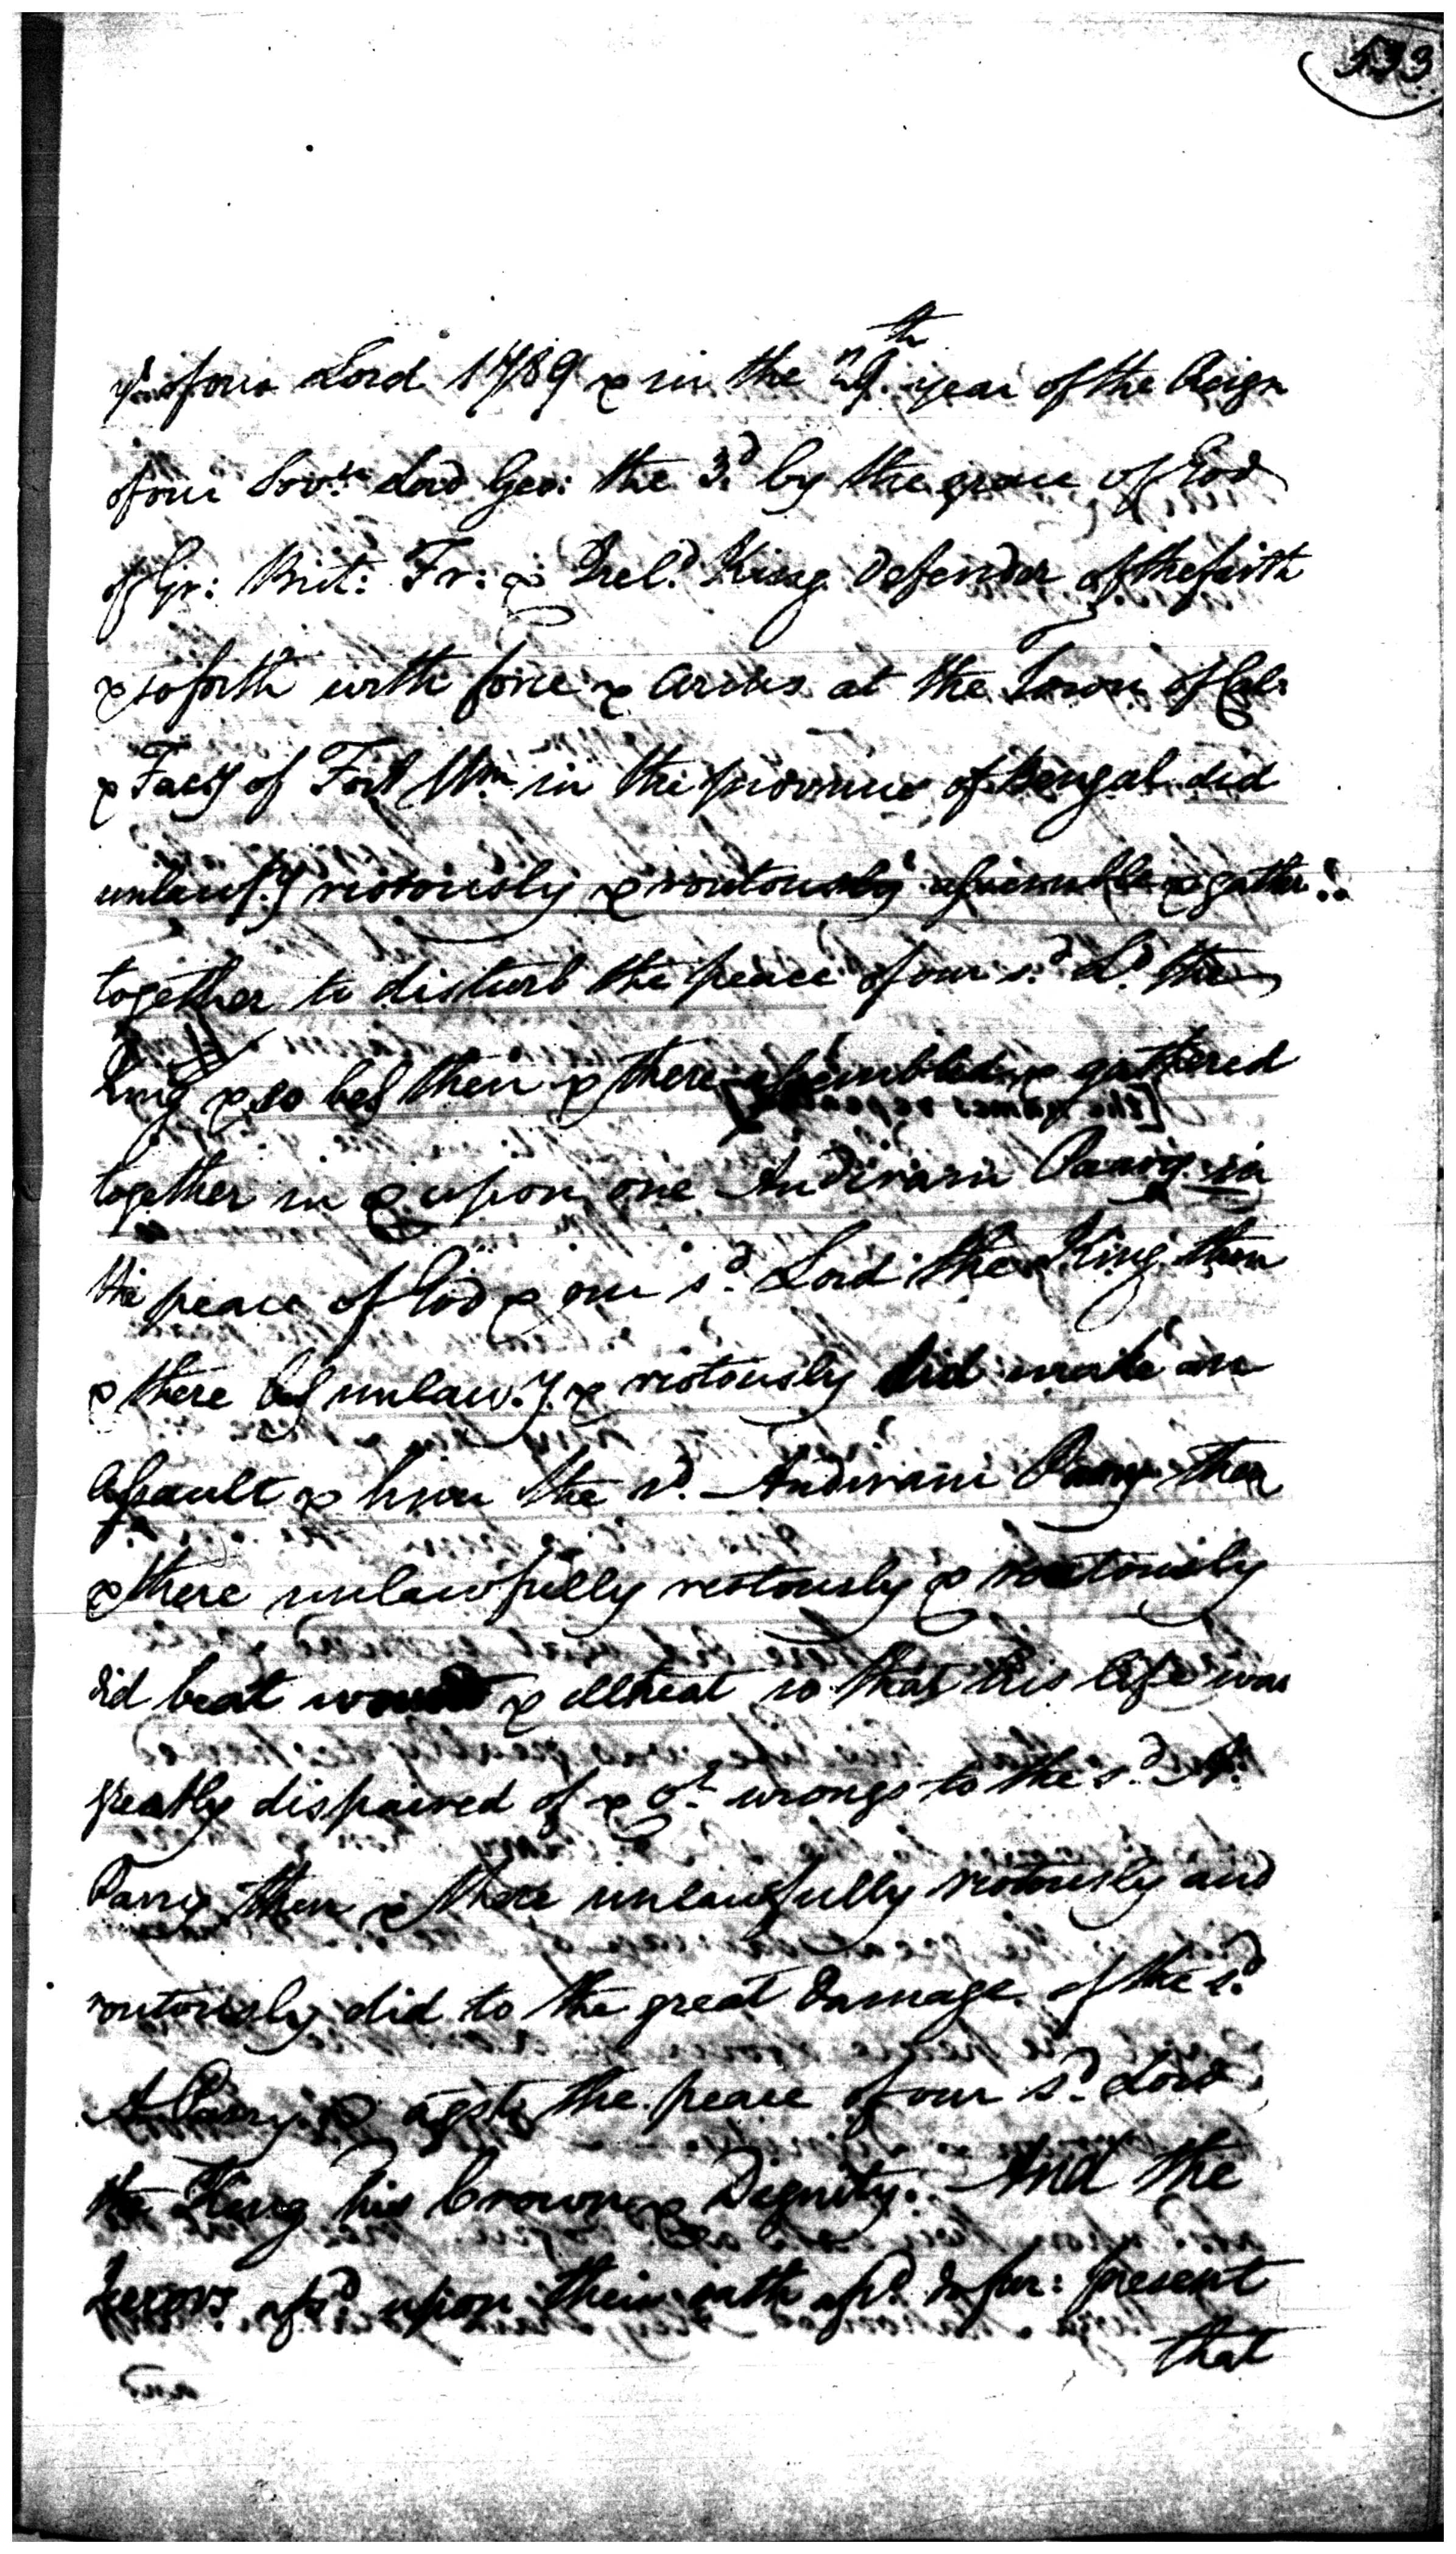 533
yr. of our Lord 1789 & in the 29th. year of the Reign
of our Sovrn. Lord Geo: the 3d. by the grace of God
of Gr: Brit: Fr: & Irel.d King Defender of the faith
& soforth with force & Arms at the Town of Cal:
& Facy of Fort Wm. in the province of Bengal did
unlawf.y riotously & routously assemble & gather
together to disturb the peace of our sd. Ld. the
King & so beg then & there assembled & gathered
together in & upon one Andiram Parry in
the peace of God & our sd. Lord the King then
& there beg unlaw.y & riotously did make an
Assault & him the sd. Andiram Parry then
& there unlawfully riotously & routously
did beat wound & illtreat so that his life was
greatly dispaired of & or. wrongs to the sd. A:
Parry then & there unlawfully riotously and
routously did to the great Damage of the sd.
A Parry & agst. the peace of our sd. Lord
the King his Crown & Dignity. And the
Jurors afsd upon their oath afsd. do fur: present
that